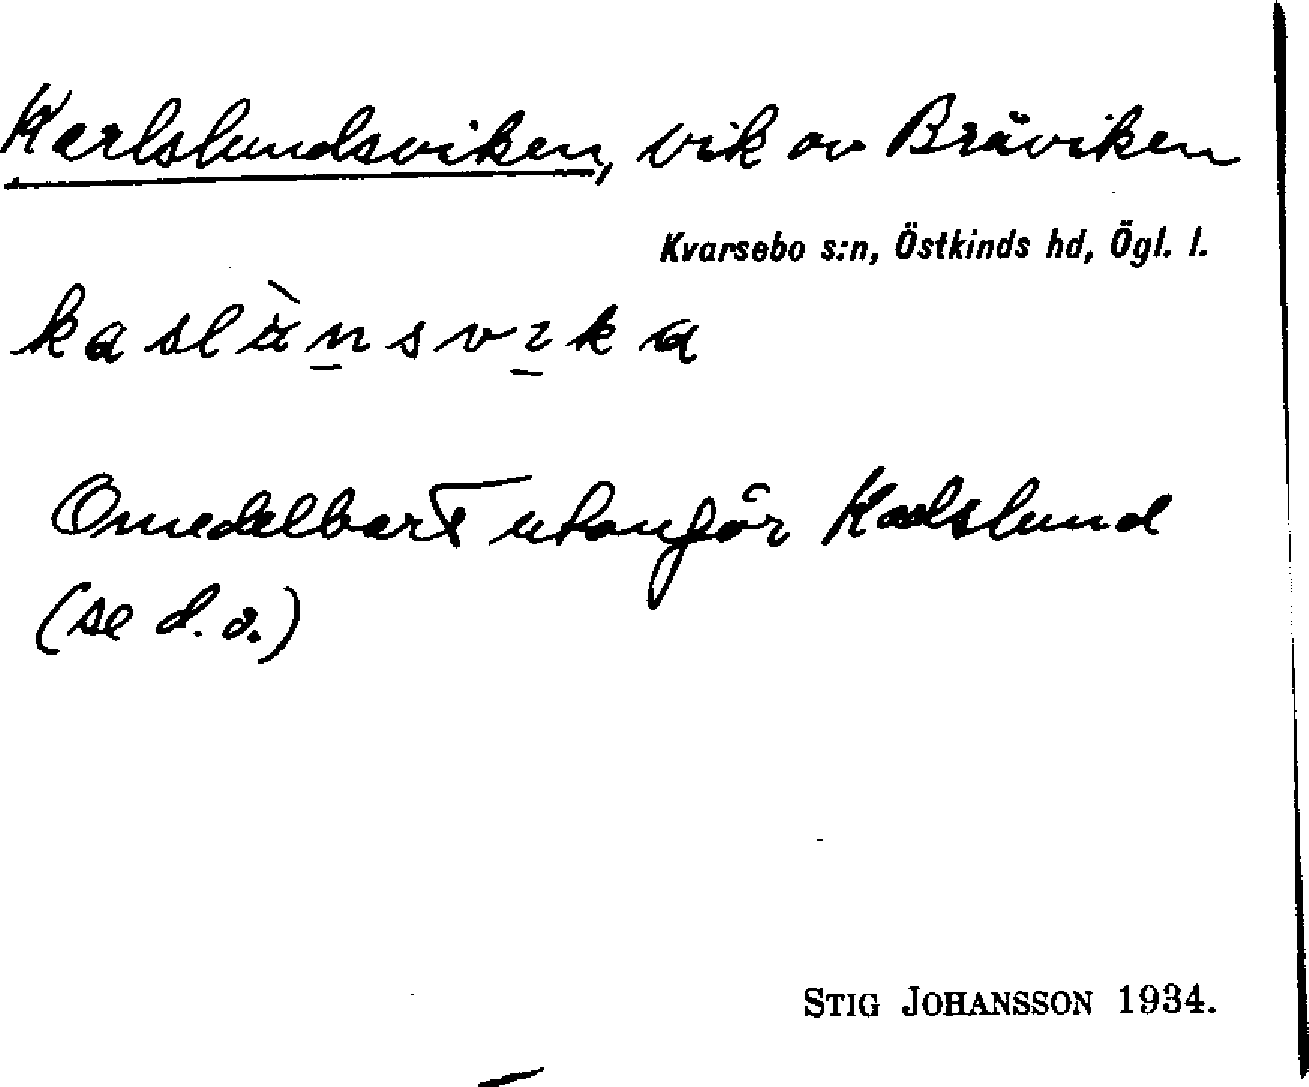 Karlslundsviken, vik av Bråviken
Kvarsebo s:n, Östkinds hd, Ögl. l.
Omedelbart utanför Karlslund
(se d. o.)
STIG JOHANSSON 1934.